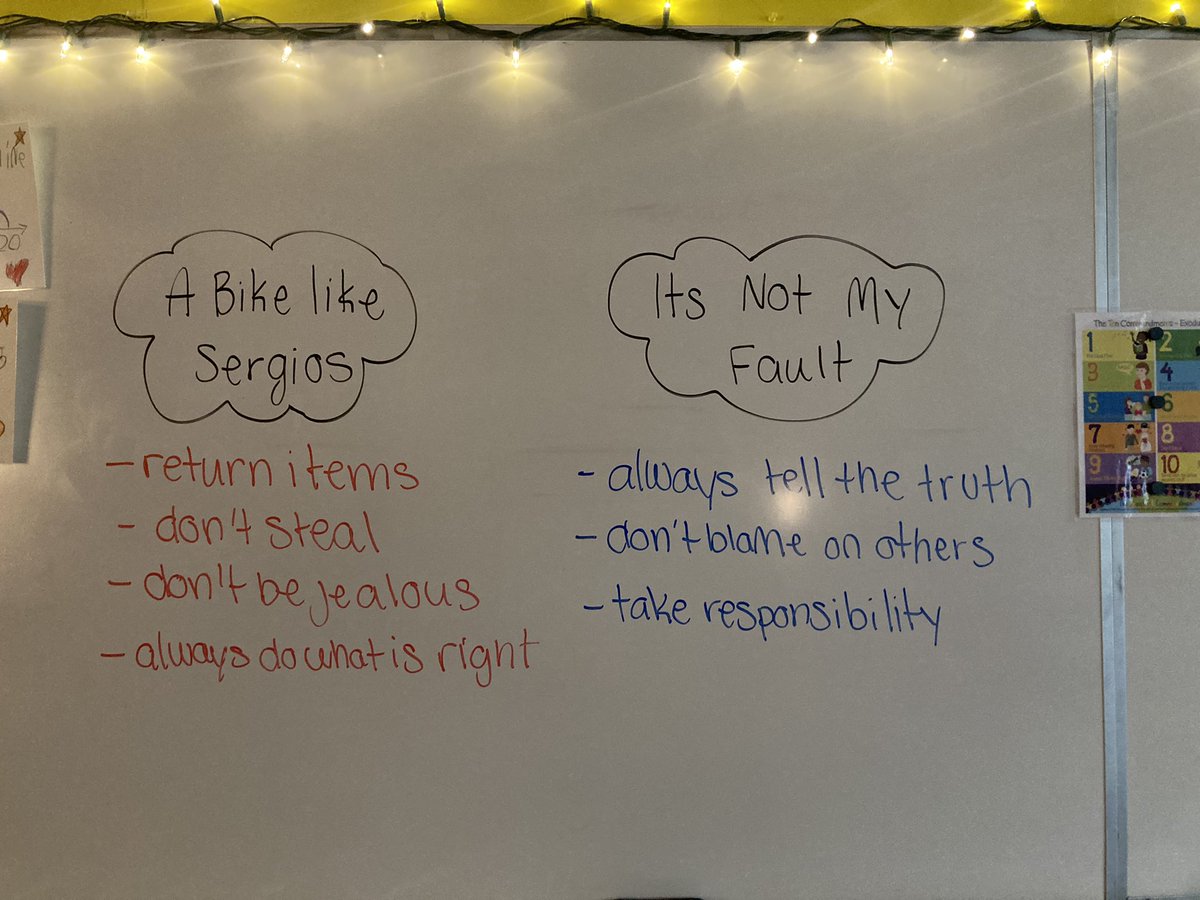 A Bike like
Sergios
- return items
- don't steal
- don't be jealous
- always do what is right
Its Not My
Fault
- always tell the truth
- don't blame on others
- take responsibility
20
The Ten Commandments - Exodus
1
2
3
4
5
6
7
8
9
10